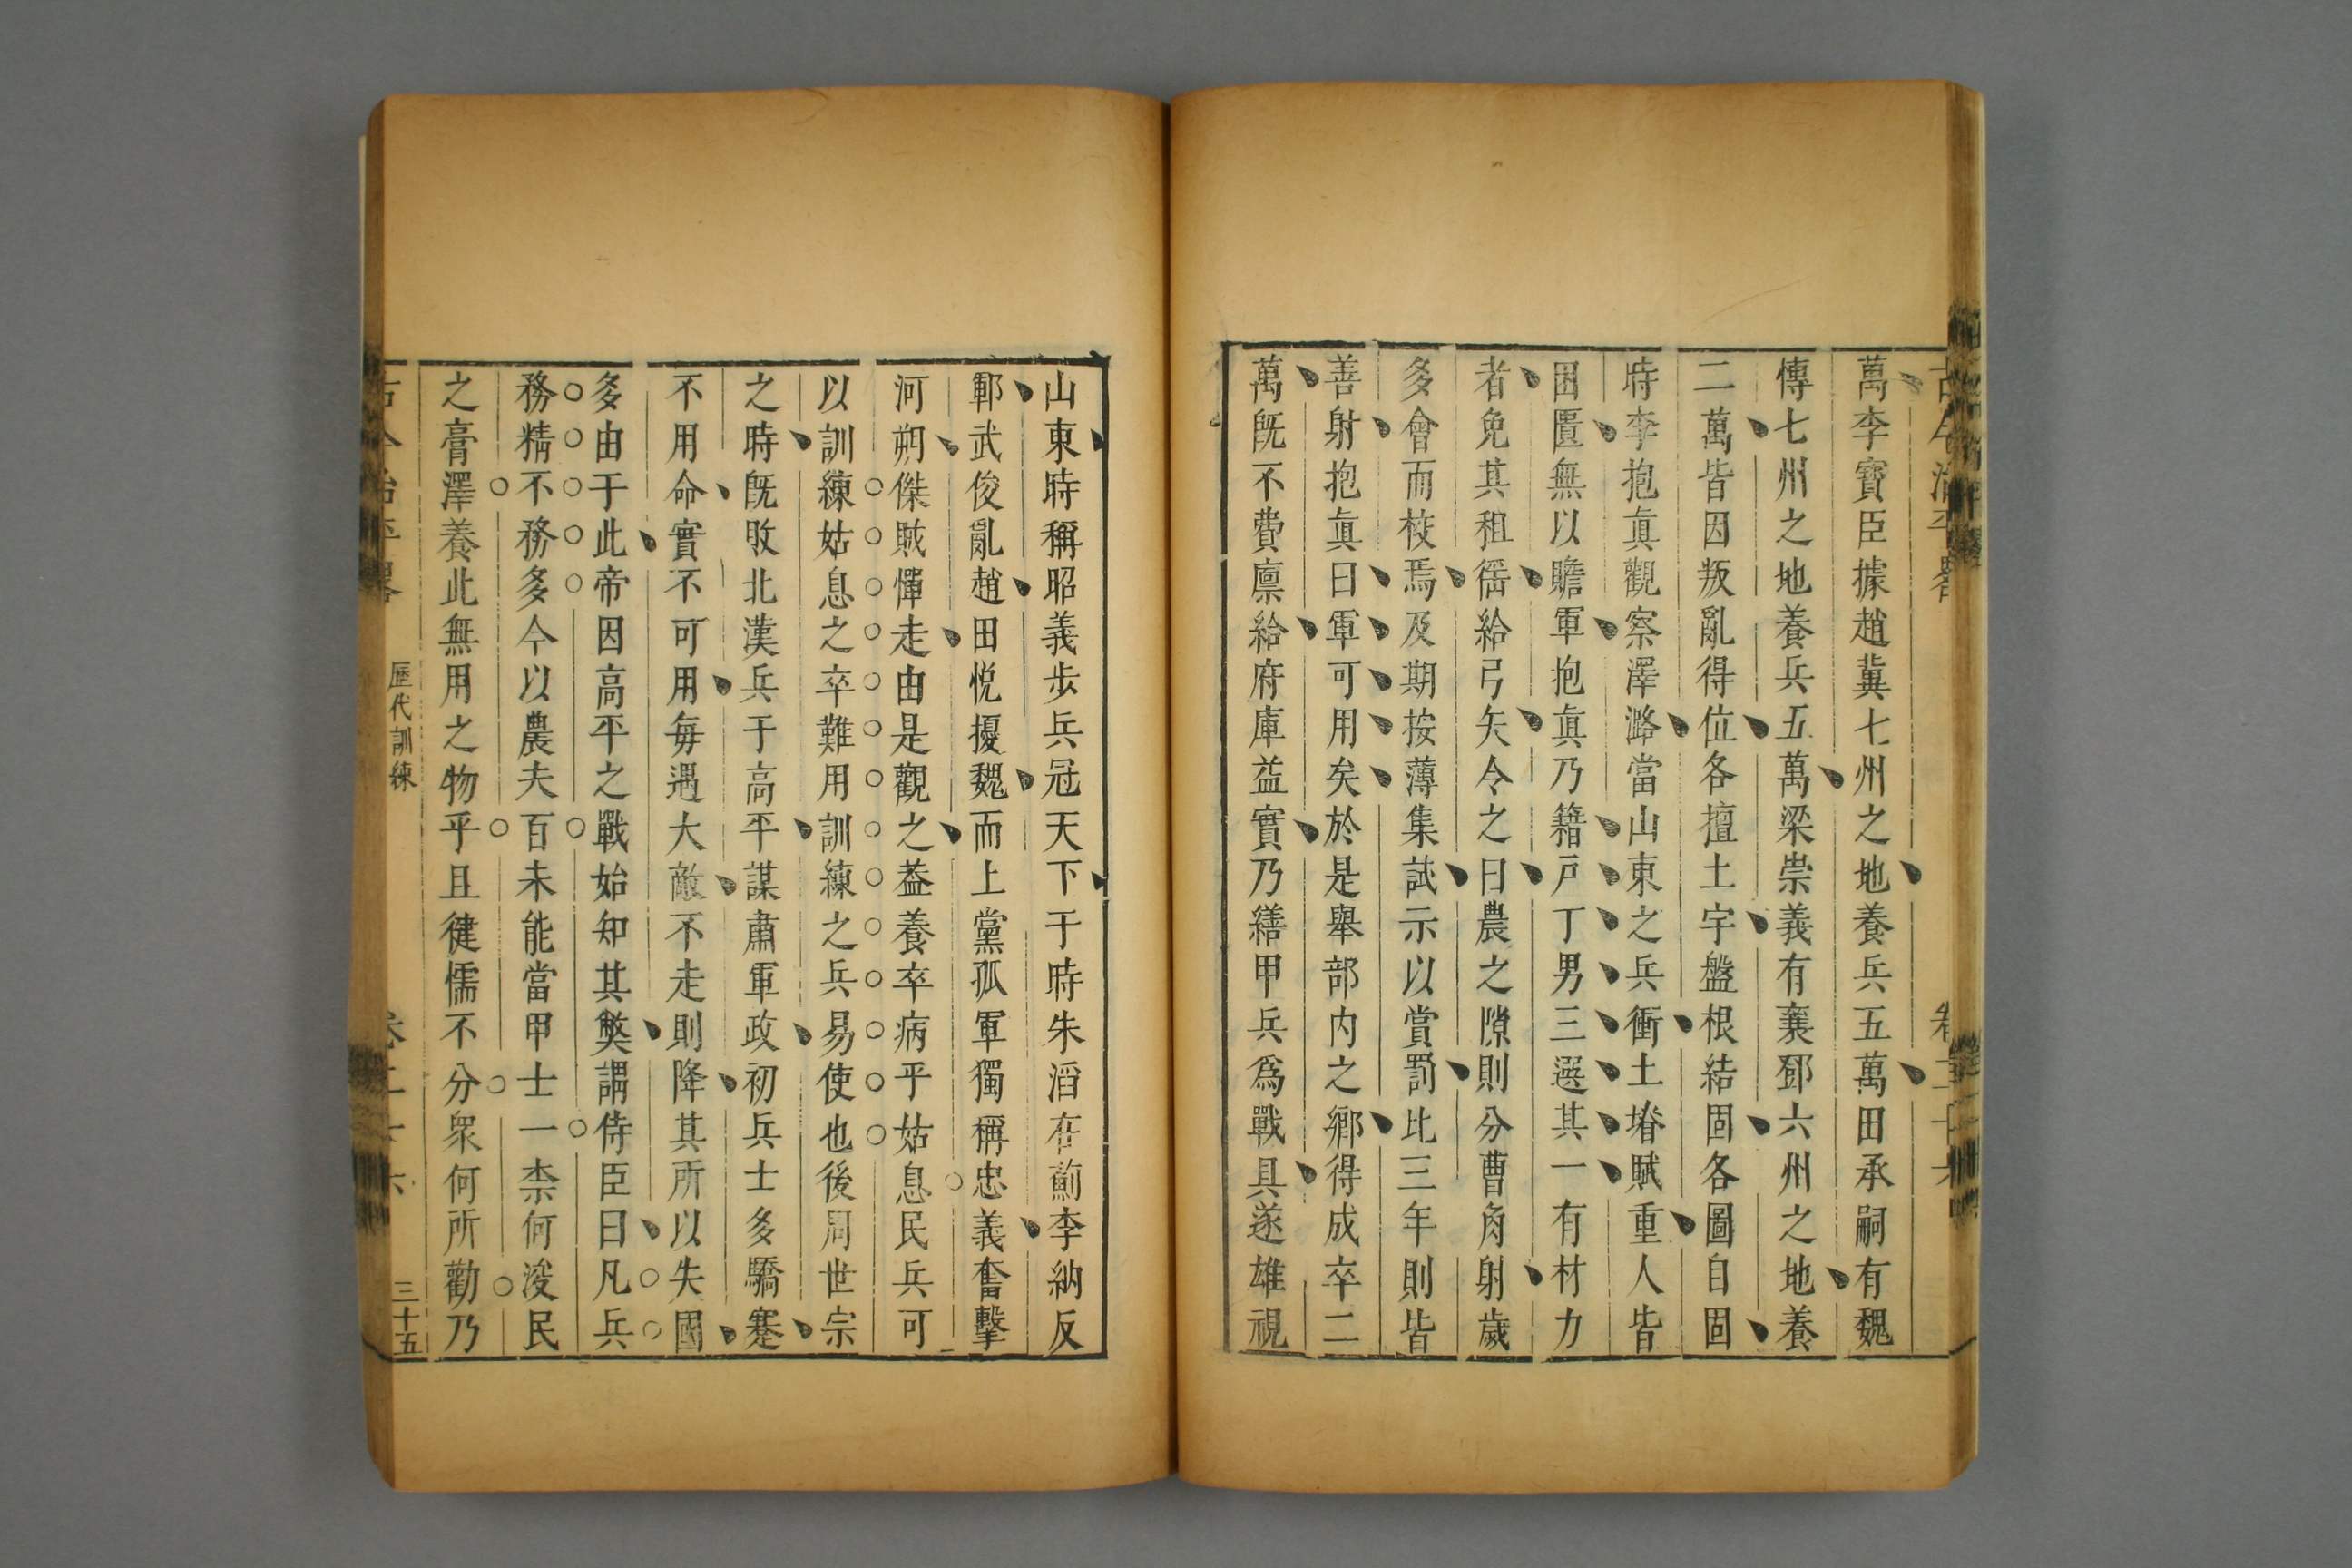 萬李寶臣據趙冀七州之地養兵五萬田承嗣有魏
傳七州之地養兵五萬梁崇義有襄鄧六州之地養
二萬皆因叛亂得位各擅土宇盤根結固各圖自固
時李抱眞觀察澤潞當山東之兵衝土瘠賦重人皆
困匱無以贍軍抱眞乃籍戸丁男三選其一有材力
者免其租徭給弓矢令之曰農之隙則分曹角射歲
多會而校焉及期按薄集試示以賞罰比三年則皆
善射抱眞曰軍可用矣於是舉部内之鄉得成卒二
萬旣不費廪給府庫益實乃繕甲兵爲戰具遂雄視
山東時稱昭義步兵冠天下于時朱滔在薊李納反
鄆武俊亂趙田悅擾魏而上黨孤軍獨稱忠義奮擊
河朔傑賊憚走由是觀之葢養卒病乎姑息民兵可
以訓練姑息之卒難用訓練之兵易使也後周世宗
之時旣敗北漢兵于高平謀肅軍政初兵士多驕蹇
不用命實不可用每遇大敵不走則降其所以失國
多由于此帝因高平之戰始知其獘謂侍臣曰凡兵
務精不務多今以農夫百未能當甲士一柰何浚民
之膏澤養此無用之物乎且健懦不分衆何所勸乃
歷代訓練
三十五